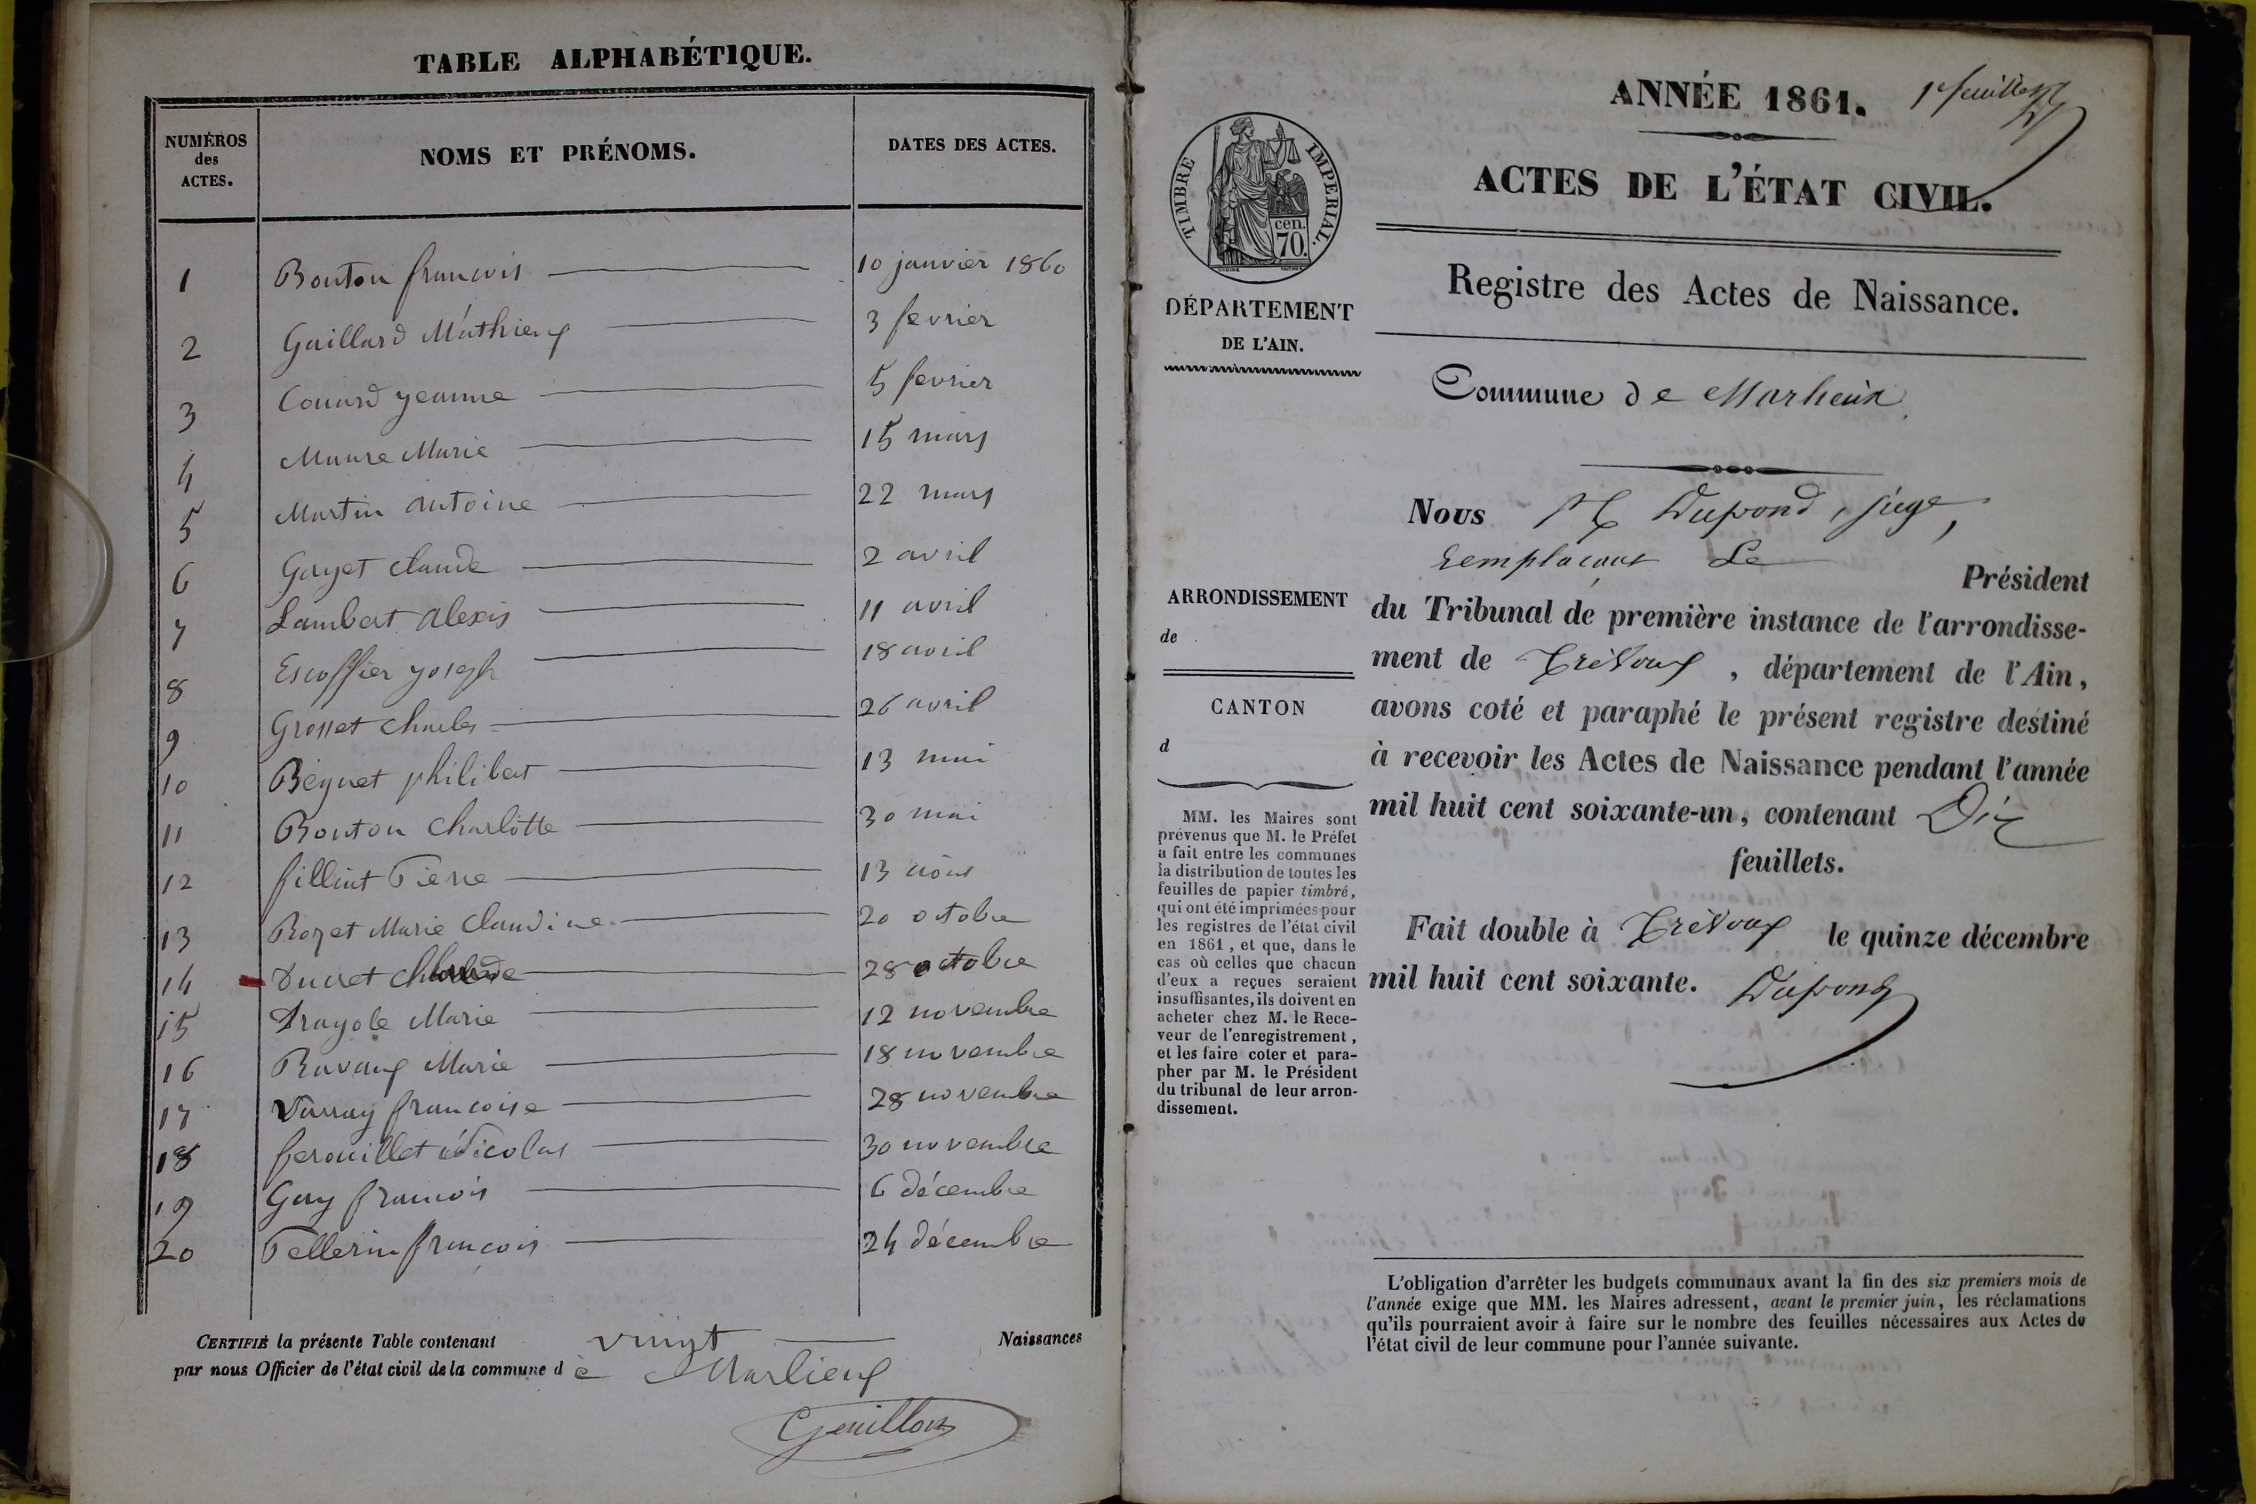 TABLE ALPHABÉTIQUE.
NUMÉROS des ACTES. NOMS ET PRÉNOMS. DATES DES ACTES.
1 Bouton françois 10 janvier 1860
2 Gaillard Mathieu 3 fevrier
3 Couard jeanne 5 fevrier
4 Maure Marie 15 mars
5 Martin antoine 22 mars
6 Gayet claude 2 avril
7 Lambert alexis 11 avril
8 Escoffier joseph 18 avril
9 Grosset charles 26 avril
10 Béguet philibert 13 mai
11 Bouton charlotte 30 mai
12 Pierre 13 août
13 Rozet Marie claudine 20 octobre
14 28 octobre
15 Marie 12 novembre
16 Ravaux Marie 18 novembre
17 françoise 28 novembre
18 ferouillet Nicolas 30 novembre
19 Guy françois 6 décembre
20 Pellerin françois 24 décembre
CERTIFIÉ la présente Table contenant vingt Naissances
par nous Officier de l'état civil de la commune d e Marlieux
Genillon
ANNÉE 1861. 1er feuillet
ACTES DE L'ÉTAT CIVIL.
TIMBRE IMPÉRIAL.
cen.
70.
Registre des Actes de Naissance.
DÉPARTEMENT
DE L'AIN.
Commune de Marlieux
Nous Dupond, juge,
remplaçant Le Président
du Tribunal de première instance de l'arrondisse-
ment de Trévoux, département de l'Ain,
avons coté et paraphé le présent registre destiné
à recevoir les Actes de Naissance pendant l'année
mil huit cent soixante-un, contenant Dix
feuillets.
Fait double à Trévoux le quinze décembre
mil huit cent soixante. Dupond
ARRONDISSEMENT
de
CANTON
d
MM. les Maires sont
prévenus que M. le Préfet
a fait entre les communes
la distribution de toutes les
feuilles de papier timbré,
qui ont été imprimées pour
les registres de l'état civil
en 1861, et que, dans le
cas où celles que chacun
d'eux a reçues seraient
insuffisantes, ils doivent en
acheter chez M. le Rece-
veur de l'enregistrement,
et les faire coter et para-
pher par M. le Président
du tribunal de leur arron-
dissement.
L'obligation d'arrêter les budgets communaux avant la fin des six premiers mois de
l'année exige que MM. les Maires adressent, avant le premier juin, les réclamations
qu'ils pourraient avoir à faire sur le nombre des feuilles nécessaires aux Actes de
l'état civil de leur commune pour l'année suivante.